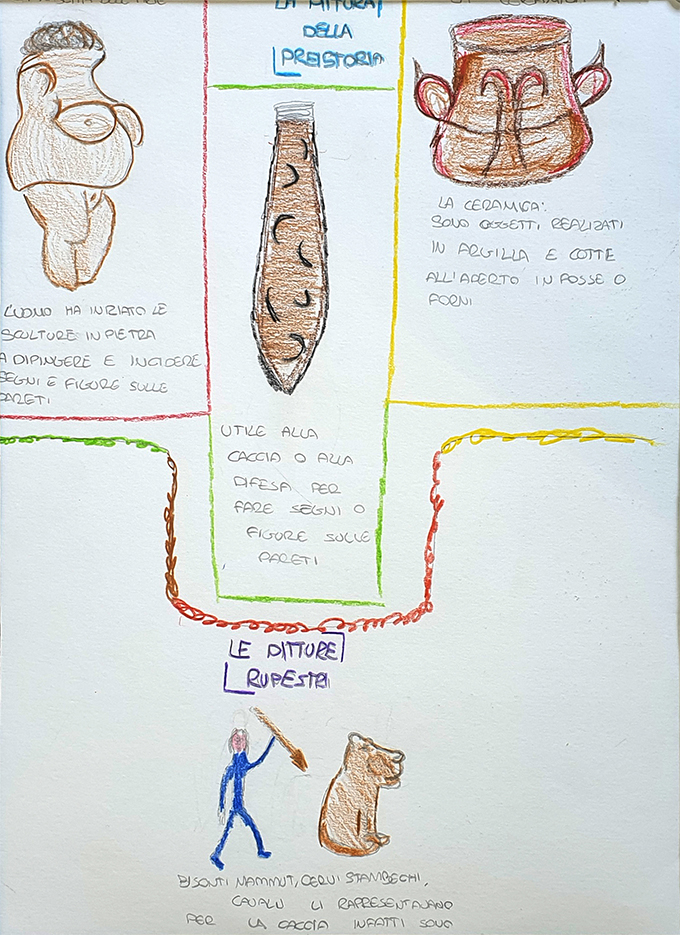 LA MITURA
DELLA
PREISTORIA
CERAMICA
L'UOMO HA INIZIATO LE
SCULTURE IN PIETRA
A DIPINGERE E INCIDERE
SEGNI E FIGURE SULLE
PARETI
UTILE ALLA
CACCIA O ALLA
DIFESA PER
FARE SEGNI O
FIGURE SULLE
PARETI
LA CERAMICA:
SONO OGGETTI REALIZATI
IN ARGILLA E COTTE
ALL'APERTO IN FOSSE O
FORNI
LE PITTURE
RUPESTRI
BISONTI MAMMUT, CERVI STAMBECHI,
CAVALLI LI RAPPRESENTAVANO
PER LA CACCIA INFATTI SONO